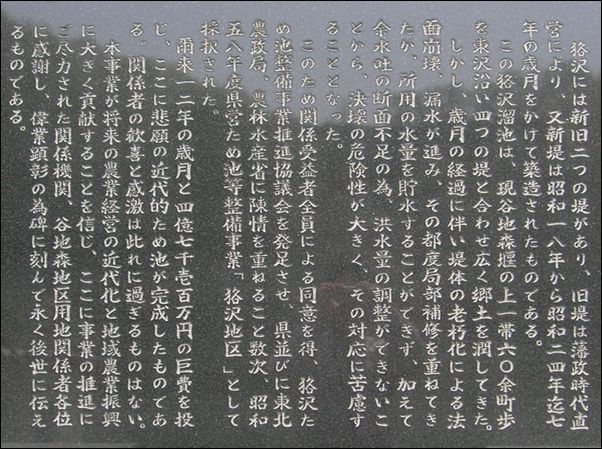 狢沢には新旧二つの堤があり、旧堤は藩政時代直
営により、又新堤は昭和一八年から昭和二四年迄七
年の歳月をかけて築造されたものである。
　この狢沢溜池は、現谷地森堰の上一帯六〇余町歩
を東沢沿い四つの堤と合わせ広く郷土を潤してきた。
　しかし、歳月の経過に伴い堤体の老朽化による法
面崩壊、漏水が進み、その都度局部補修を重ねてき
たが、所用の水量を貯水することができず、加えて
余水吐の断面不足の為、洪水量の調整ができないこ
とから、決壊の危険性が大きく、その対応に苦慮す
ることとなった。
　このため関係受益者全員による同意を得、狢沢た
め池整備事業推進協議会を発足させ、県並びに東北
農政局、農林水産省に陳情を重ねること数次、昭和
五八年度県営ため池等整備事業「狢沢地区」として
採択された。
　爾来一二年の歳月と四億七千壱百万円の巨費を投
じ、ここに悲願の近代的ため池が完成したものであ
る。関係者の歓喜と感激は此れに過ぎるものはない。
　本事業が将来の農業経営の近代化と地域農業振興
に大きく貢献することを信じ、ここに事業の推進に
ご尽力された関係機関、谷地森地区用地関係者各位
に感謝し、偉業顕彰の為碑に刻んで永く後世に伝え
るものである。